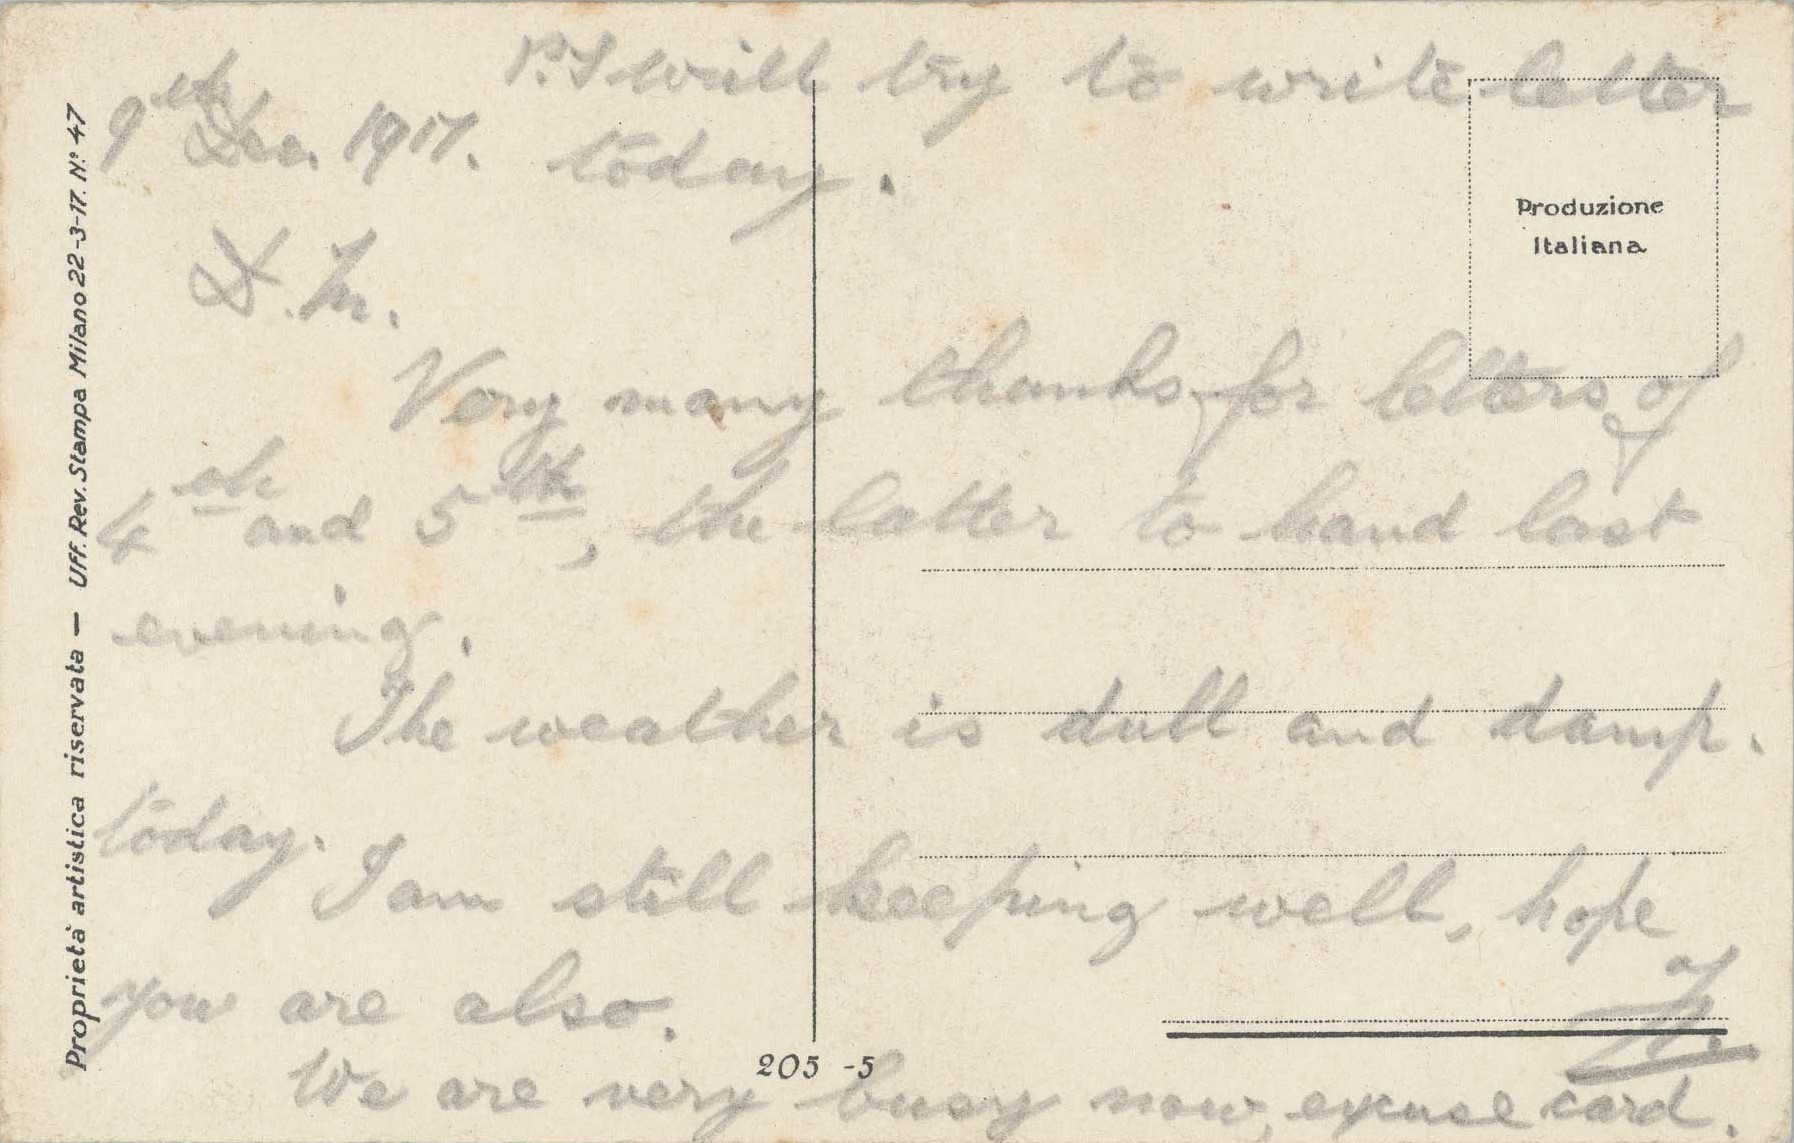 P.S I will try to write letter
today.
9th Dec. 1917.
D. M.
Very many thanks for letters of
4th and 5th, the latter to hand last
evening.
The weather is dull and damp.
today. I am still keeping well, hope
you are also.
We are very busy now, excuse card.
Produzione
Italiana
Proprietà artistica riservata — Uff. Rev. Stampa Milano 22-3-17. N° 47
205 -5